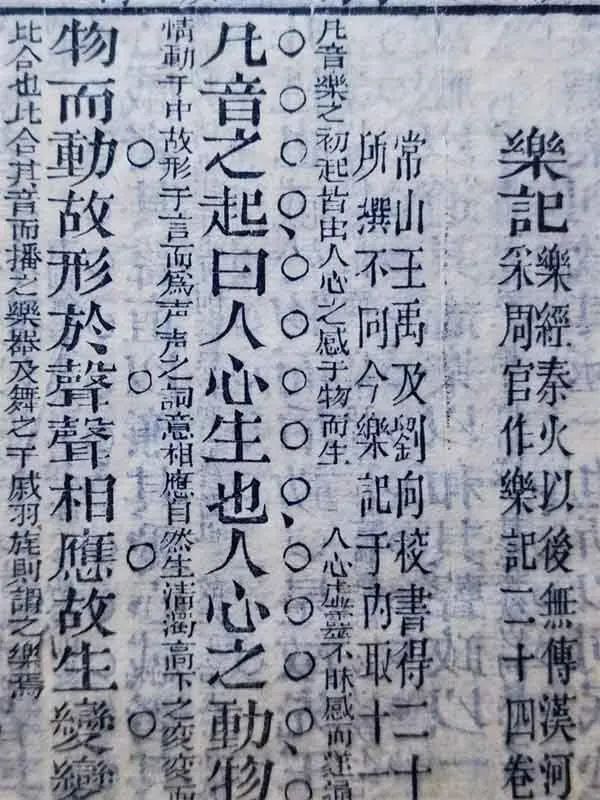 樂記
樂經秦火以後無傳漢河
采周官作樂記二十四卷
常山王禹及劉向校書得二十
所撰不同今樂記于內取十一
凡音樂之初起皆由人心之感于物而生 人心虛靈不昧感而遂通
凡音之起曰人心生也人心之動物
情動于中故形于言而爲声声之詞意相應自然生清濁高下之变变而
物而動故形於聲聲相應故生變變
比合也比合其音而播之樂器及舞之干戚羽旄則謂之樂焉